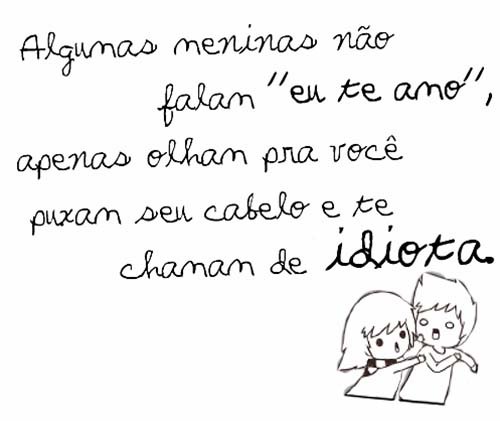 Algumas meninas não
falam "eu te amo",
apenas olham pra você
puxam seu cabelo e te
chamam de idiota.